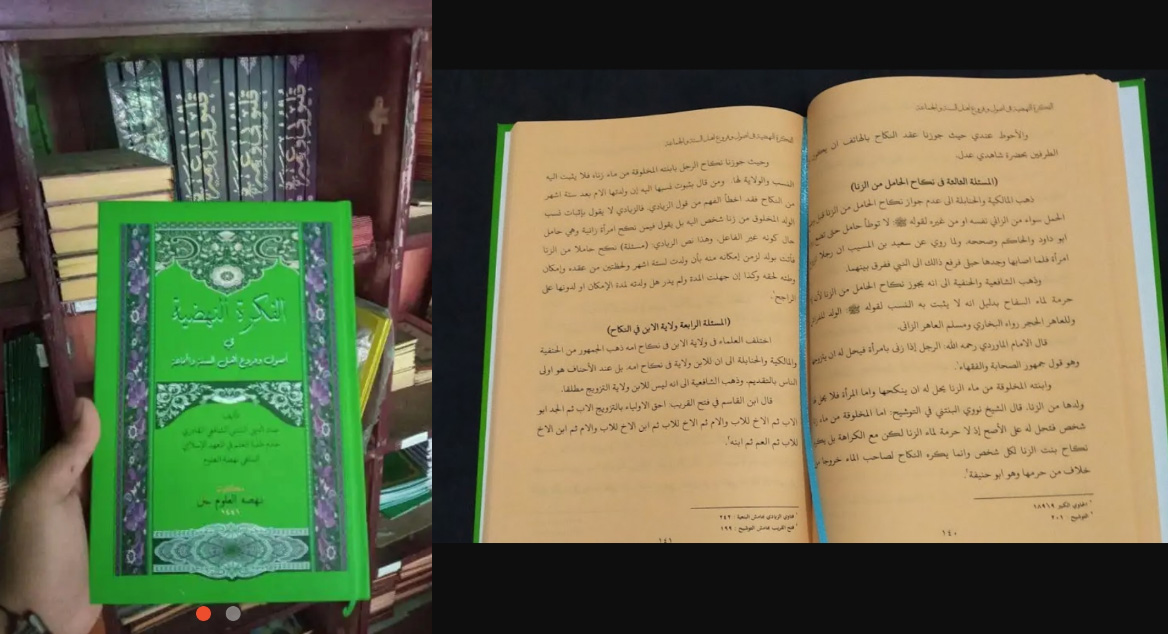 الفكرة النهضية
في
أصول وفروع أهل السنة والجماعة
تأليف
نهضة العلوم
١٤٤١
الفكرة النهضية في أصول وفروع أهل السنة والجماعة
والأحوط عندي حيث جوزنا عقد النكاح بالهاتف ان يحضر
الطرفين بحضرة شاهدي عدل.
(المسئلة الثالثة في نكاح الحامل من الزنا)
ذهب المالكية والحنابلة الى عدم جواز نكاح الحامل من الزنا قبل
الحمل سواء من الزاني نفسه او من غيره لقوله ﷺ: لا توطأ حامل حتى تضع
ابو داود والحاكم وصححه. ولما روي عن سعيد بن المسيب ان رجلا
امرأة فلما اصابها وجدها حبلى فرفع ذالك الى النبي ففرق بينهما.
وذهب الشافعية والحنفية الى انه يجوز نكاح الحامل من الزنا لأنه
حرمة لماء السفاح بدليل انه لا يثبت به النسب لقوله ﷺ: الولد للفراش
وللعاهر الحجر رواه البخاري ومسلم العاهر الزانى.
قال الامام الماوردي رحمه الله: الرجل إذا زنى بامرأة فيحل له ان يتزوجها
وهو قول جمهور الصحابة والفقهاء.
وابنته المخلوقة من ماء الزنا يحل له ان ينكحها واما المرأة فلا يحل
ولدها من الزنا. قال الشيخ نووي البنتني في التوشيح: اما المخلوقة من ماء
شخص فتحل له على الأصح إذ لا حرمة لماء الزنا لكن مع الكراهة بل يكره
نكاح بنت الزنا لكل شخص وانما يكره النكاح لصاحب الماء خروجا من
خلاف من حرمها وهو ابو حنيفة.
التوشيح : ٢٠١
١٤٠
الفكرة النهضية في أصول وفروع أهل السنة والجماعة
وحيث جوزنا نكاح الرجل بابنته المخلوقة من ماء زناه فلا يثبت اليه
النسب والولاية لها. ومن قال بثبوت نسبها اليه إن ولدتها الام بعد ستة اشهر
من النكاح فقد اخطأ الفهم من قول الزيادي. فالزيادي لا يقول بإثبات نسب
الولد المخلوق من زنا شخص اليه بل يقول فيمن نكح امرأة زانية وهي حامل
حال كونه غير الفاعل. وهذا نص الزيادي: (مسئلة) نكح حاملا من الزنا
فأتت بولد لزمن إمكانه منه بأن ولدت لستة اشهر ولحظتين من عقده وإمكان
وطئه لحقه وكذا إن جهلت المدة ولم يدر هل ولدته لمدة الإمكان او لدونها على
الراجح.
(المسئلة الرابعة ولاية الابن في النكاح)
اختلف العلماء في ولاية الابن في نكاح امه ذهب الجمهور من الحنفية
والمالكية والحنابلة الى ان للابن ولاية في نكاح امه. بل عند الأحناف هو اولى
الناس بالتقديم. وذهب الشافعية الى انه ليس للابن ولاية التزويج مطلقا.
قال ابن القاسم في فتح القريب: احق الاولياء بالتزويج الاب ثم الجد ابو
الاب ثم الاخ للاب والام ثم الاخ للاب ثم ابن الاخ للاب والام ثم ابن الاخ
للاب ثم العم ثم ابنه.
فتاوي الزيادي بهامش البغية : ٢٤٢
فتح القريب بهامش التوشيح : ١٩٩
١٤١